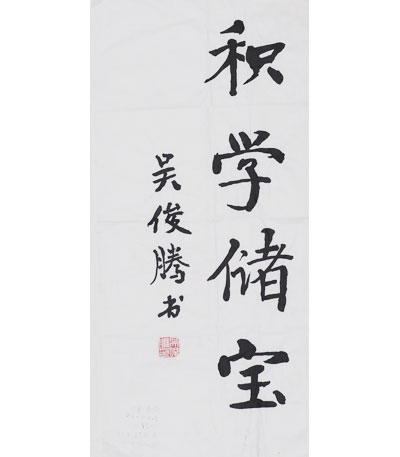 积学储宝
吴俊腾书